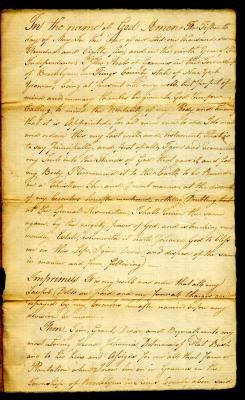 In the name of God Amen. The Fifteenth
day of May In the Year of our Lord one thousand Seven
Hundred and Eighty five, and in the ninth Year of the
Independance I
of Brooklyn in Kings County State of New York
Yeoman, being at present not very well, but perfect of
mind and memory thanks be given unto God therefore
Calling to mind the Mortality of my Body and knowing
that it is Appointed for all men once to die. Do make
and ordain this my last will and Testament, That is
to say Principally, and first of all, I give and recommend
my Soul into the Hands of God that gave it and for
my Body I Recommend it to the Earth to be Buried
in a Christian like and decent manner at the discretion
of my Executors nothing Doubting but
at the General Resurrection I shall receive the same
again by the mighty power of God, and as touching such
worldly Estate, wherewith it hath pleased God to bless
me in this Life I give Devise and dispose of the same
in manner and form following
Imprimis It is my will and order that all my
Lawful Debts are Paid and my Funeral Charges are
defrayed by my Executors hereafter named before any
Item I give, Grant, Devise and Bequeath unto my
most Loving friend Johannis Debevoise of Flat Bush
and to his heirs and Assigns for ever all that Farm or
Plantation where I now live on in Gowanus in the
Township of Brooklyn in Kings County above said